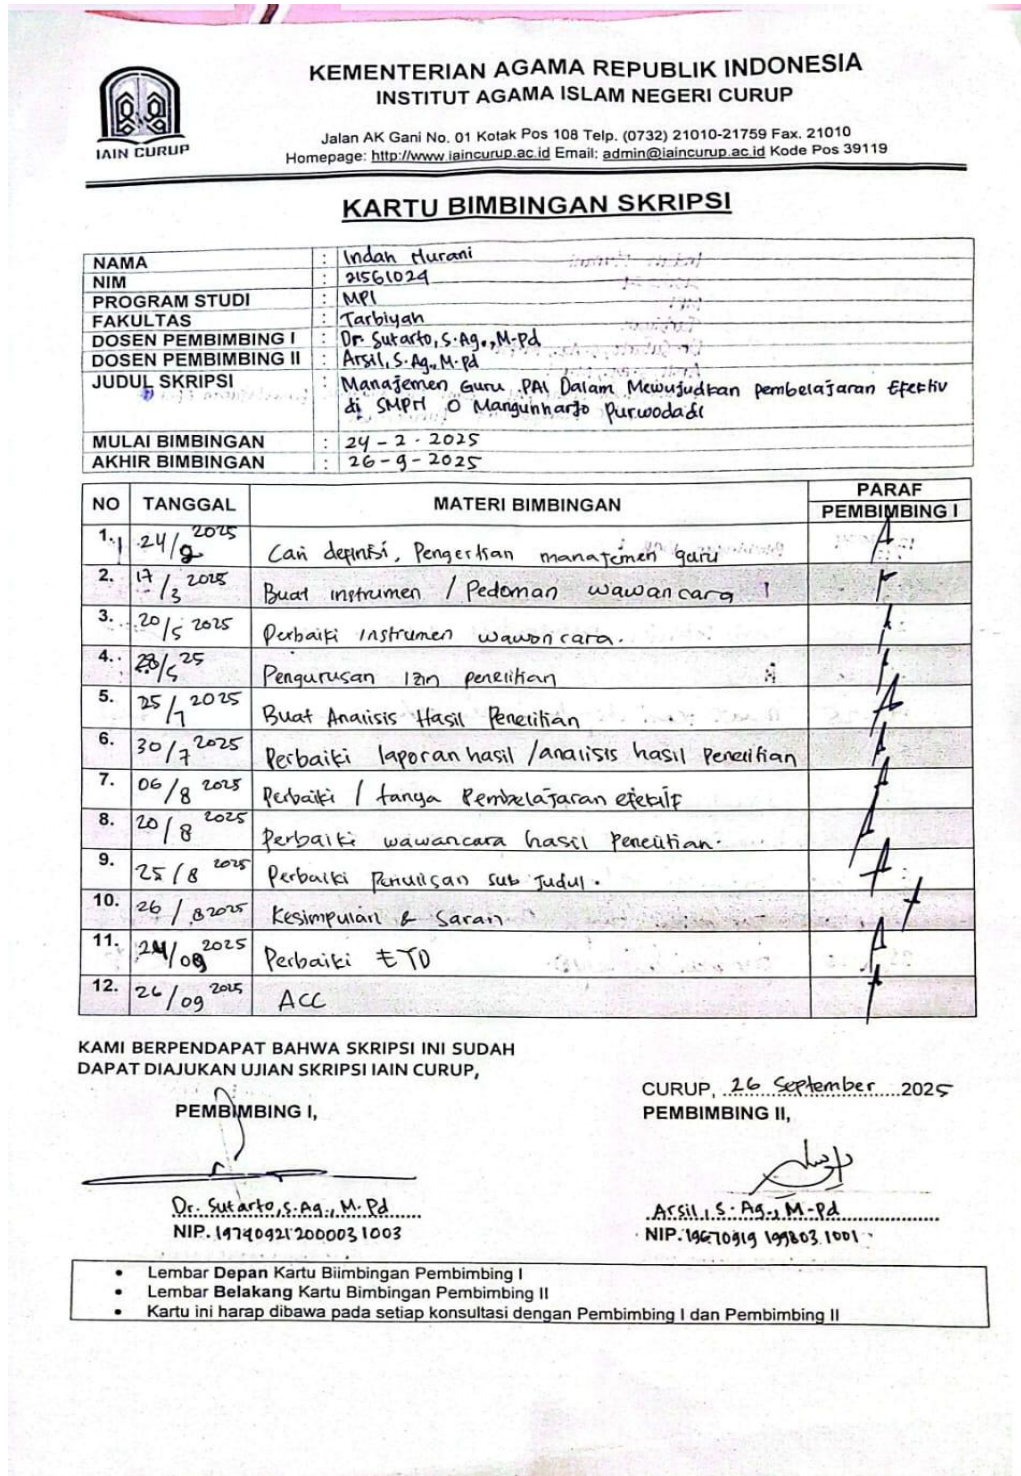 KEMENTERIAN AGAMA REPUBLIK INDONESIA
INSTITUT AGAMA ISLAM NEGERI CURUP
IAIN CURUP
Jalan AK Gani No. 01 Kotak Pos 108 Telp. (0732) 21010-21759 Fax. 21010
Homepage: http://www.iaincurup.ac.id Email: admin@iaincurup.ac.id Kode Pos 39119
KARTU BIMBINGAN SKRIPSI
NAMA : Indah Nurani
NIM : 21561024
PROGRAM STUDI : MPI
FAKULTAS : Tarbiyah
DOSEN PEMBIMBING I : Dr. Sutarto, S.Ag., M.Pd
DOSEN PEMBIMBING II : Arsil, S.Ag., M.Pd
JUDUL SKRIPSI : Manajemen Guru PAI Dalam Mewujudkan pembelajaran Efektiv
di SMPN O Mangunharjo Purwodadi
MULAI BIMBINGAN : 24 - 2 - 2025
AKHIR BIMBINGAN : 26 - 9 - 2025
NO TANGGAL MATERI BIMBINGAN PARAF PEMBIMBING I
1. 24/2 2025 Cari definisi, Pengertian manajemen guru
2. 17/3 2025 Buat instrumen / Pedoman wawancara
3. 20/5 2025 Perbaiki instrumen wawancara.
4. 28/5 25 Pengurusan izin penelitian
5. 25/7 2025 Buat Analisis Hasil Penelitian
6. 30/7 2025 Perbaiki laporan hasil / analisis hasil Penelitian
7. 06/8 2025 Perbaiki / tanya Pembelajaran efektif
8. 20/8 2025 Perbaiki wawancara hasil Penelitian.
9. 25/8 2025 Perbaiki Penulisan sub judul.
10. 26/8 2025 Kesimpulan & Saran
11. 24/09 2025 Perbaiki
12. 26/09 2025 ACC
KAMI BERPENDAPAT BAHWA SKRIPSI INI SUDAH
DAPAT DIAJUKAN UJIAN SKRIPSI IAIN CURUP,
CURUP, 26 September 2025
PEMBIMBING I,
PEMBIMBING II,
Dr. Sutarto, S.Ag., M.Pd
NIP. 197409212000031003
Arsil, S.Ag., M-Pd
NIP. 19670919 199803 1001
• Lembar Depan Kartu Biimbingan Pembimbing I
• Lembar Belakang Kartu Bimbingan Pembimbing II
• Kartu ini harap dibawa pada setiap konsultasi dengan Pembimbing I dan Pembimbing II